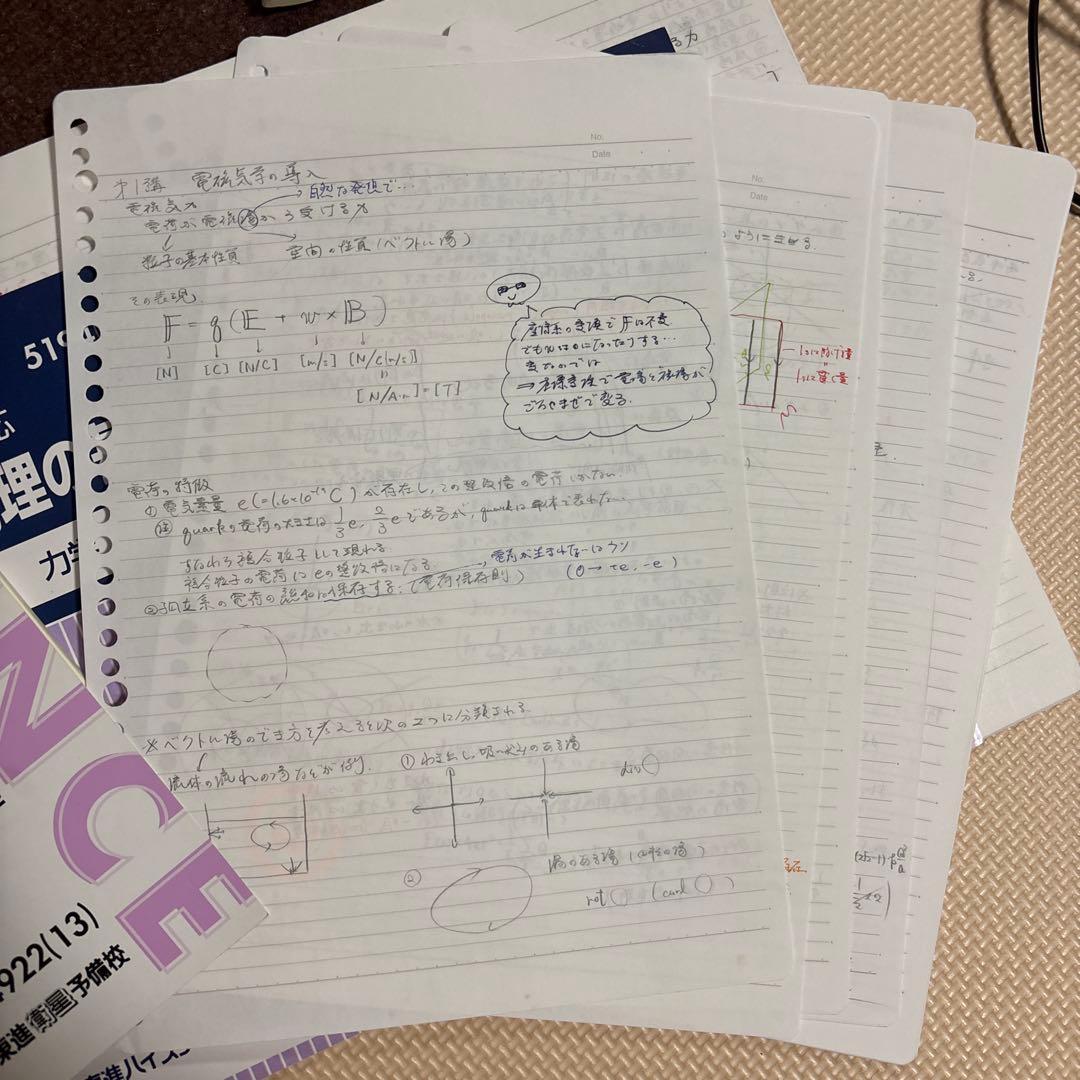 No.
Date
第1講 電磁気学の導入
自然な発想で…
電磁気力
電荷が電磁場から受ける力
粒子の基本性質
空間の性質(ベクトル場)
その表現
F = q(E + v × B)
[N] [C] [N/C] [m/s] [N/C(m/s)]
[N/A·m] = [T]
座標系の変換でFは不変
でもvは0になったりする…
変なのでは
→座標変換で電場と磁場が
ごちゃまぜで変る。
電荷の特徴
① 電気素量 e(=1.6×10⁻¹⁹C)が存在し、この整数倍の電荷しかない
quarkの電荷の大きさは 1/3 e, 2/3 e であるが, quarkは単体で表れない…
すなわち複合粒子として現れる
複合粒子の電荷はeの整数倍になる
→電荷が生まれないはウソ
(0→+e, -e)
②孤立系の電荷の総和は保存する。(電荷保存則)
※ベクトル場のでき方を考えると次の2つに分類される
流体の流れの場などが例.
① わき出し、吸い込みのある場
div○
②
渦のある場
rot ○ (curl ○)
No.
Date
519
理の
力学
NCE
922(13)
東進衛星予備校
東進ハイス